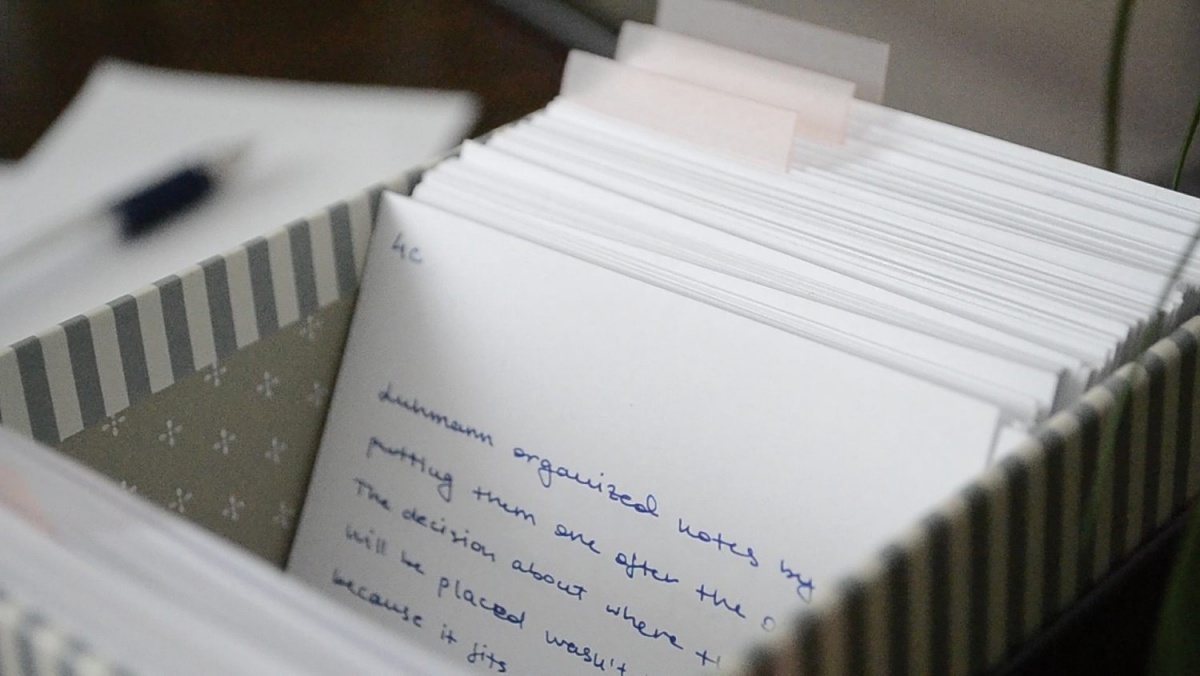 4c
Luhmann organized notes by
putting them one after the
The decision about where
will be placed wasn't
because it fits